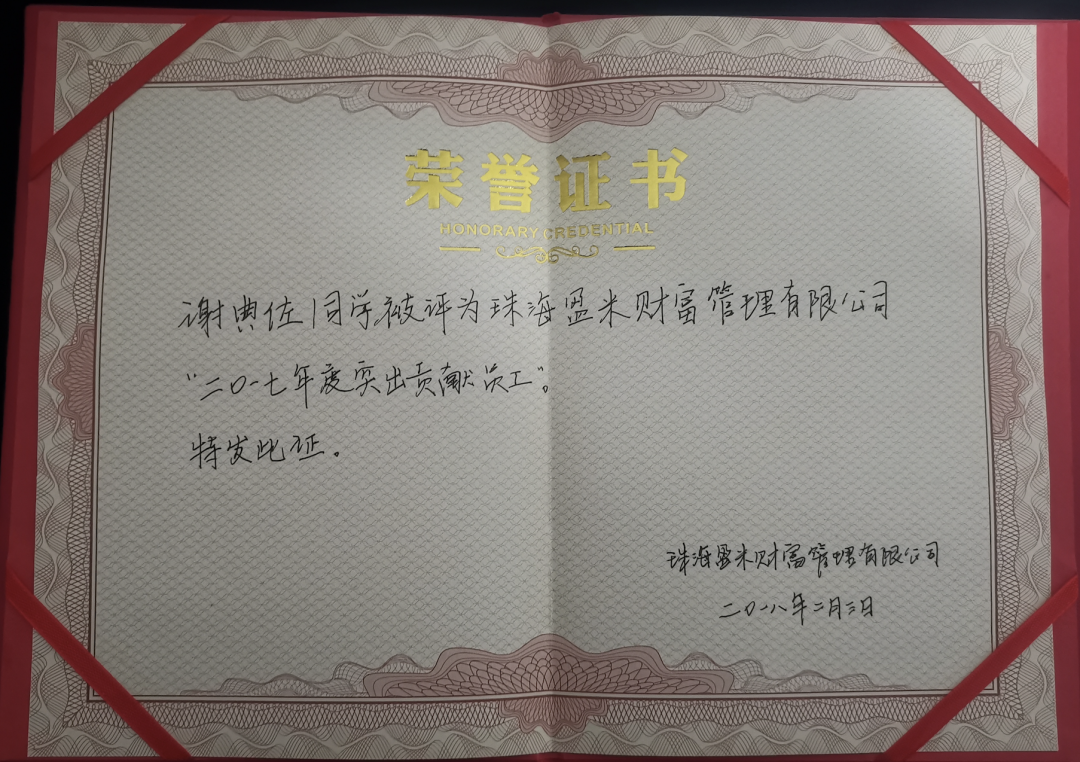 荣誉证书
HONORARY CREDENTIAL
谢典佐同学被评为珠海盈米财富管理有限公司
“二〇一七年度突出贡献员工”。
特发此证。
珠海盈米财富管理有限公司
二〇一八年二月三日